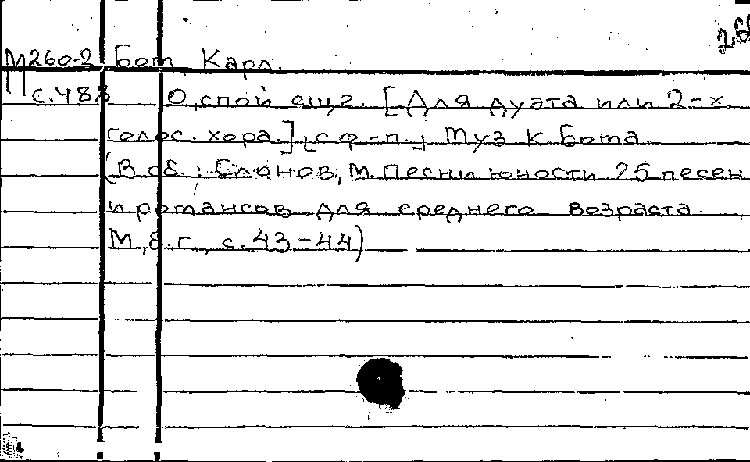 26
М260-2 Бот, Карл.
с.488 О, спой еще. [Для дуэта или 2-х
голос. хора.] [с ф-п.] Муз К. Бота
(В сб.: М. Песни юности 25 песен
и романсов для среднего возраста
М., б.г., с.43-44)